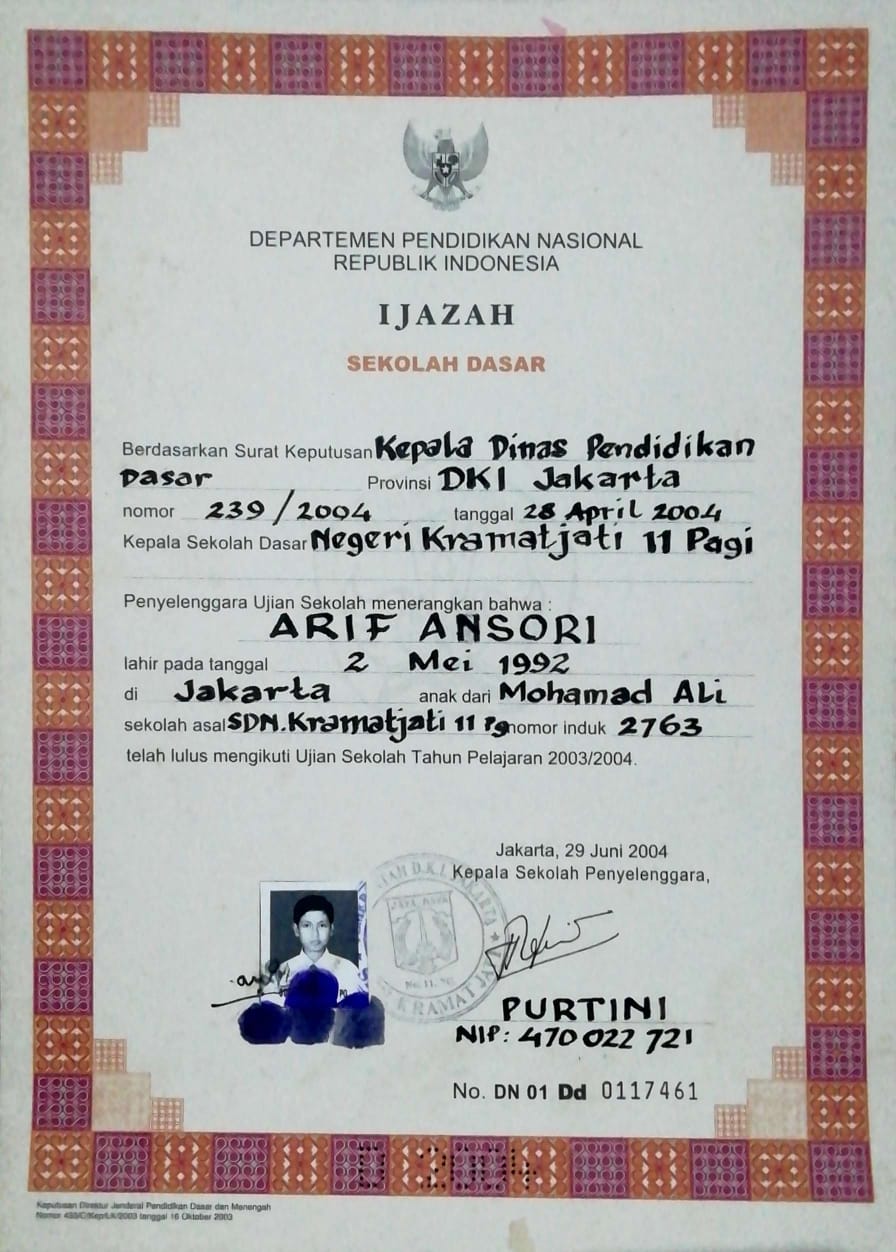 DEPARTEMEN PENDIDIKAN NASIONAL
REPUBLIK INDONESIA
IJAZAH
SEKOLAH DASAR
Berdasarkan Surat Keputusan Kepala Dinas Pendidikan
Dasar Provinsi DKI Jakarta
nomor 239/2004 tanggal 28 April 2004
Kepala Sekolah Dasar Negeri Kramatjati 11 Pagi
Penyelenggara Ujian Sekolah menerangkan bahwa :
ARIF ANSORI
lahir pada tanggal 2 Mei 1992
di Jakarta anak dari Mohamad Ali
sekolah asal SDN.Kramatjati 11 Pg nomor induk 2763
telah lulus mengikuti Ujian Sekolah Tahun Pelajaran 2003/2004.
Jakarta, 29 Juni 2004
Kepala Sekolah Penyelenggara,
D.K.I. JAKARTA
JAYA RAYA
KRAMAT JATI
PURTINI
NIP: 470 022 721
No. DN 01 Dd 0117461
2004
Keputusan Direktur Jenderal Pendidikan Dasar dan Menengah
tanggal 16 Oktober 2003